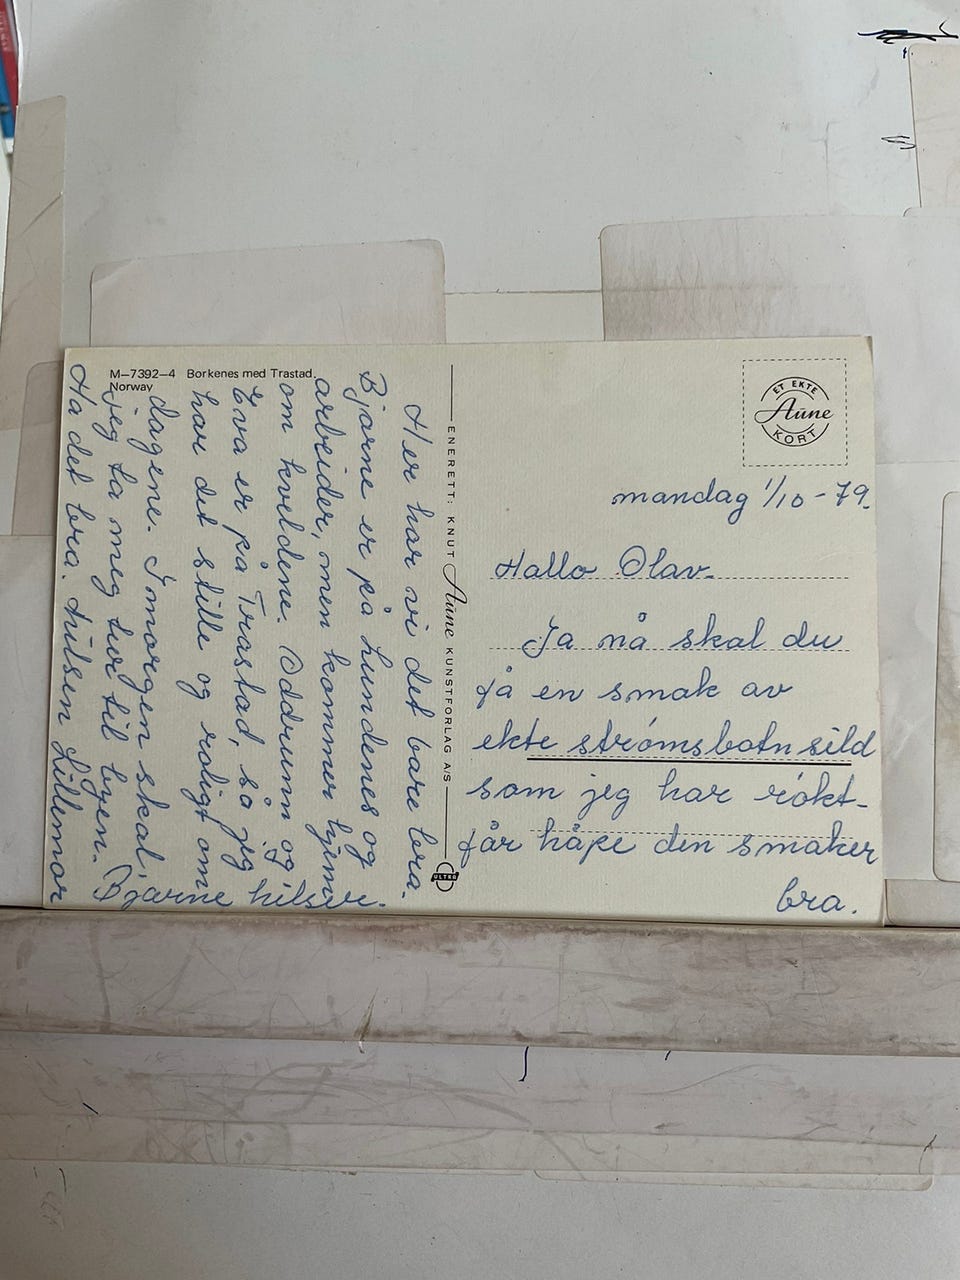 M–7392–4 Borkenes med Trastad.
Norway
ET EKTE
Aune
KORT
mandag 1/10 - 79.
Hallo Olav.
Ja nå skal du
få en smak av
ekte strømsbotn sild
som jeg har røkt-
får håpe den smaker
bra.
ENERETT: KNUT Aune KUNSTFORLAG A/S
ULTRA
Her har vi det bare bra.
Bjarne er på Lundenes og
arbeider, men kommer hjem
om kveldene. Oddrunn og
Eva er på Trastad, så jeg
har det stille og roligt om
dagene. I morgen skal
jeg ta meg tur til byen.
Ha det bra. Hilsen Lillemor
Bjarne hilser.